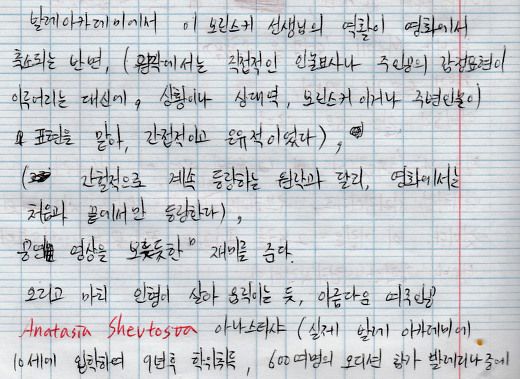 발레아카데미에서 이 보린스키 선생님의 역활이 영화에서
축소되는 반면, (원작에서는 직접적인 인물묘사나 주인공의 감정표현이
이루어지는 대신에, 상황이나 상대역, 보린스키 이거나 주변인물이
그 표현을 맡아, 간접적이고 은유적이였다),
( 간헐적으로 계속 등장하는 원작과 달리, 영화에서는
처음과 끝에서만 등장한다),
공연 영상을 보는듯한 재미를 준다.
그리고 마리 인형이 살아 움직이는 듯, 아름다운 여주인공
Anatasia Shevtosva 아나스타샤 (실제 발레 아카데미에
10세에 입학하여 9년후 학위취득, 600여명의 오디션 참가 발레리나중에